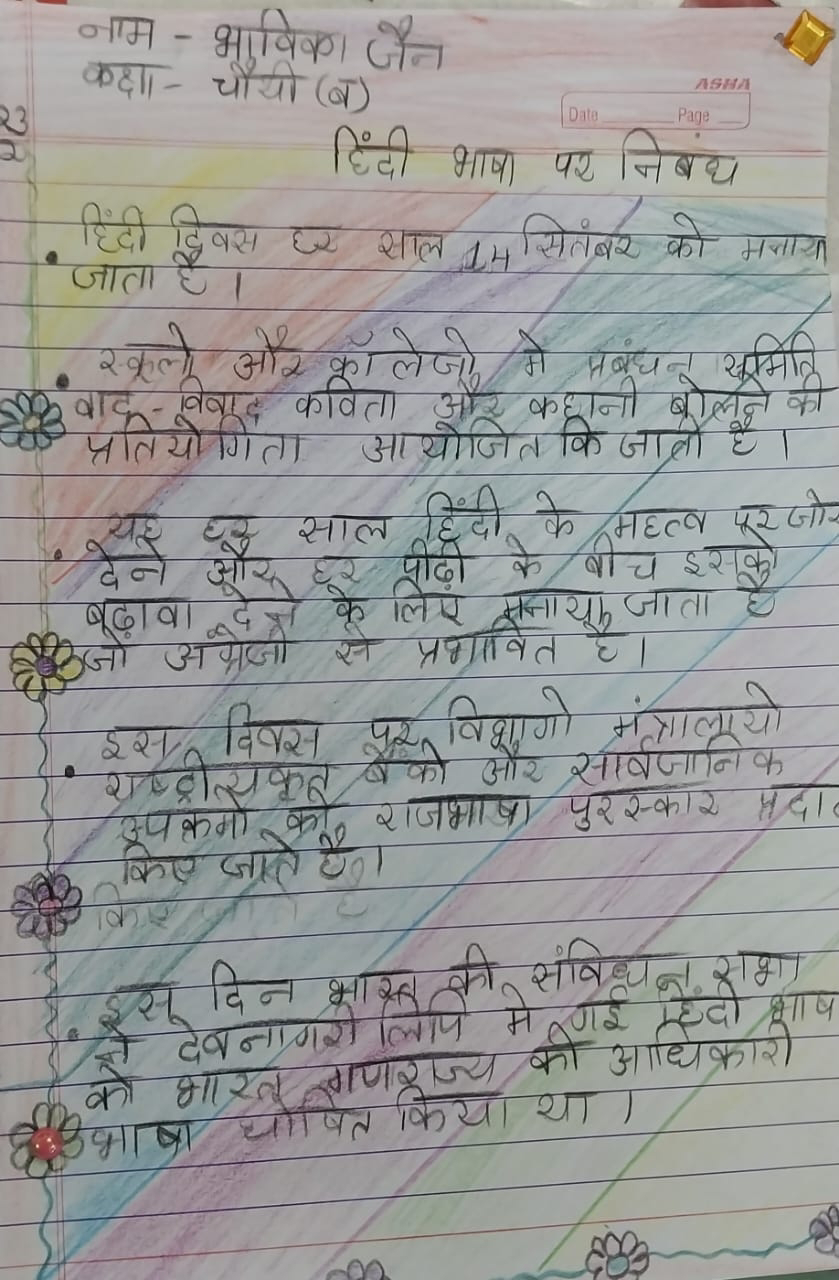 नाम - भाविका जैन
कक्षा - चौथी (ब)
ASHA
Date Page
23
2
हिंदी भाषा पर निबंध
हिंदी दिवस हर साल 14 सितंबर को मनाया
जाता है ।
स्कूलो और कॉलेजो मे प्रबंधन समिति
वाद - विवाद कविता और कहानी बोलने की
प्रतियोगिता आयोजित कि जाती है ।
यह हर साल हिंदी के महत्व पर जोर
देने और हर पीढ़ी के बीच इसको
बढ़ावा देने के लिए मनाया जाता है
जो अंग्रेजी से प्रभावित है ।
इस दिवस पर विभागो मंत्रालायो
राष्ट्रीत्यकृत बैंको और सार्वजानिक
उपक्रमो को राजभाषा पुरस्कार प्रदा
किए जाते है ।
किए जाते है
इस दिन भारत की संविधन सभा
ने देवनागरी लिपि मे गई हिंदी भाष
को भारत गणराज्य की आधिकारी
भाषा घोषित किया था ।